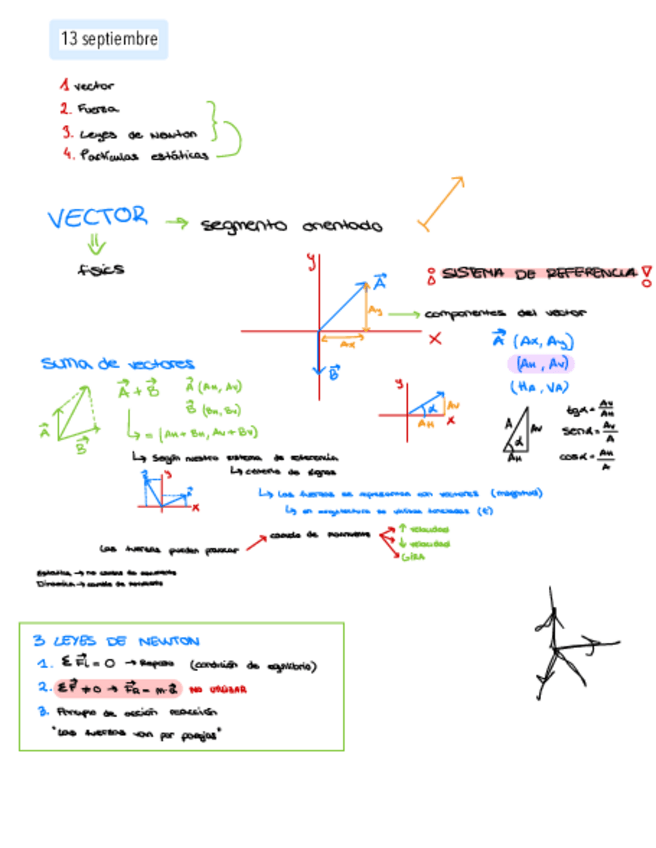 13 septiembre
1 vector
2. Fuerza
3. Leyes de Newton
4. Partículas estáticas
VECTOR → segmento orientado
física
¡SISTEMA DE REFERENCIA!
y
A
Ay
→ componentes del vector
Ax
x
B
A (Ax, Ay)
(AH, AV)
(HA, VA)
Suma de vectores
A + B
A (AH, AV)
B (BH, BV)
= (AH + BH, AV + BV)
A
B
y
α
AV
AH
x
A
AV
α
AH
tgα = AV/AH
senα = AV/A
cosα = AH/A
↳ Según nuestro sistema de referencia
↳ criterio de signos
y
x
↳ Las fuerzas se representan con vectores (magnitud)
↳ en arquitectura se utilizan toneladas (t)
Las fuerzas pueden provocar
cambio de movimiento
↑ velocidad
↓ velocidad
GIRA
Estática → no cambio de movimiento
Dinámica → cambio de movimiento
3 LEYES DE NEWTON
1. ΣFi = 0 → Reposo (condición de equilibrio)
2. ΣF ≠ 0 → FR = m·a NO UTILIZAR
3. Principio de acción reacción
"Las fuerzas van por parejas"